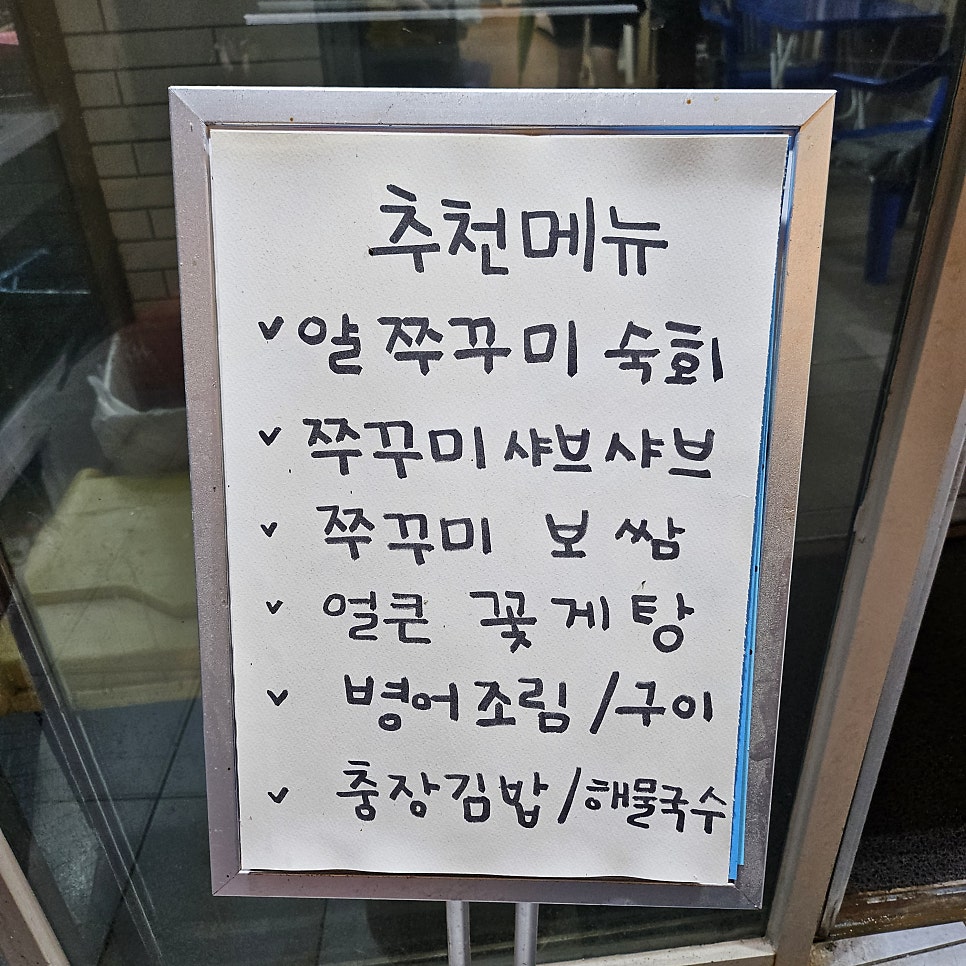 추천메뉴
v 알쭈꾸미 숙회
v 쭈꾸미 샤브샤브
v 쭈꾸미 보쌈
v 얼큰 꽃게탕
v 병어조림/구이
v 충장김밥/해물국수